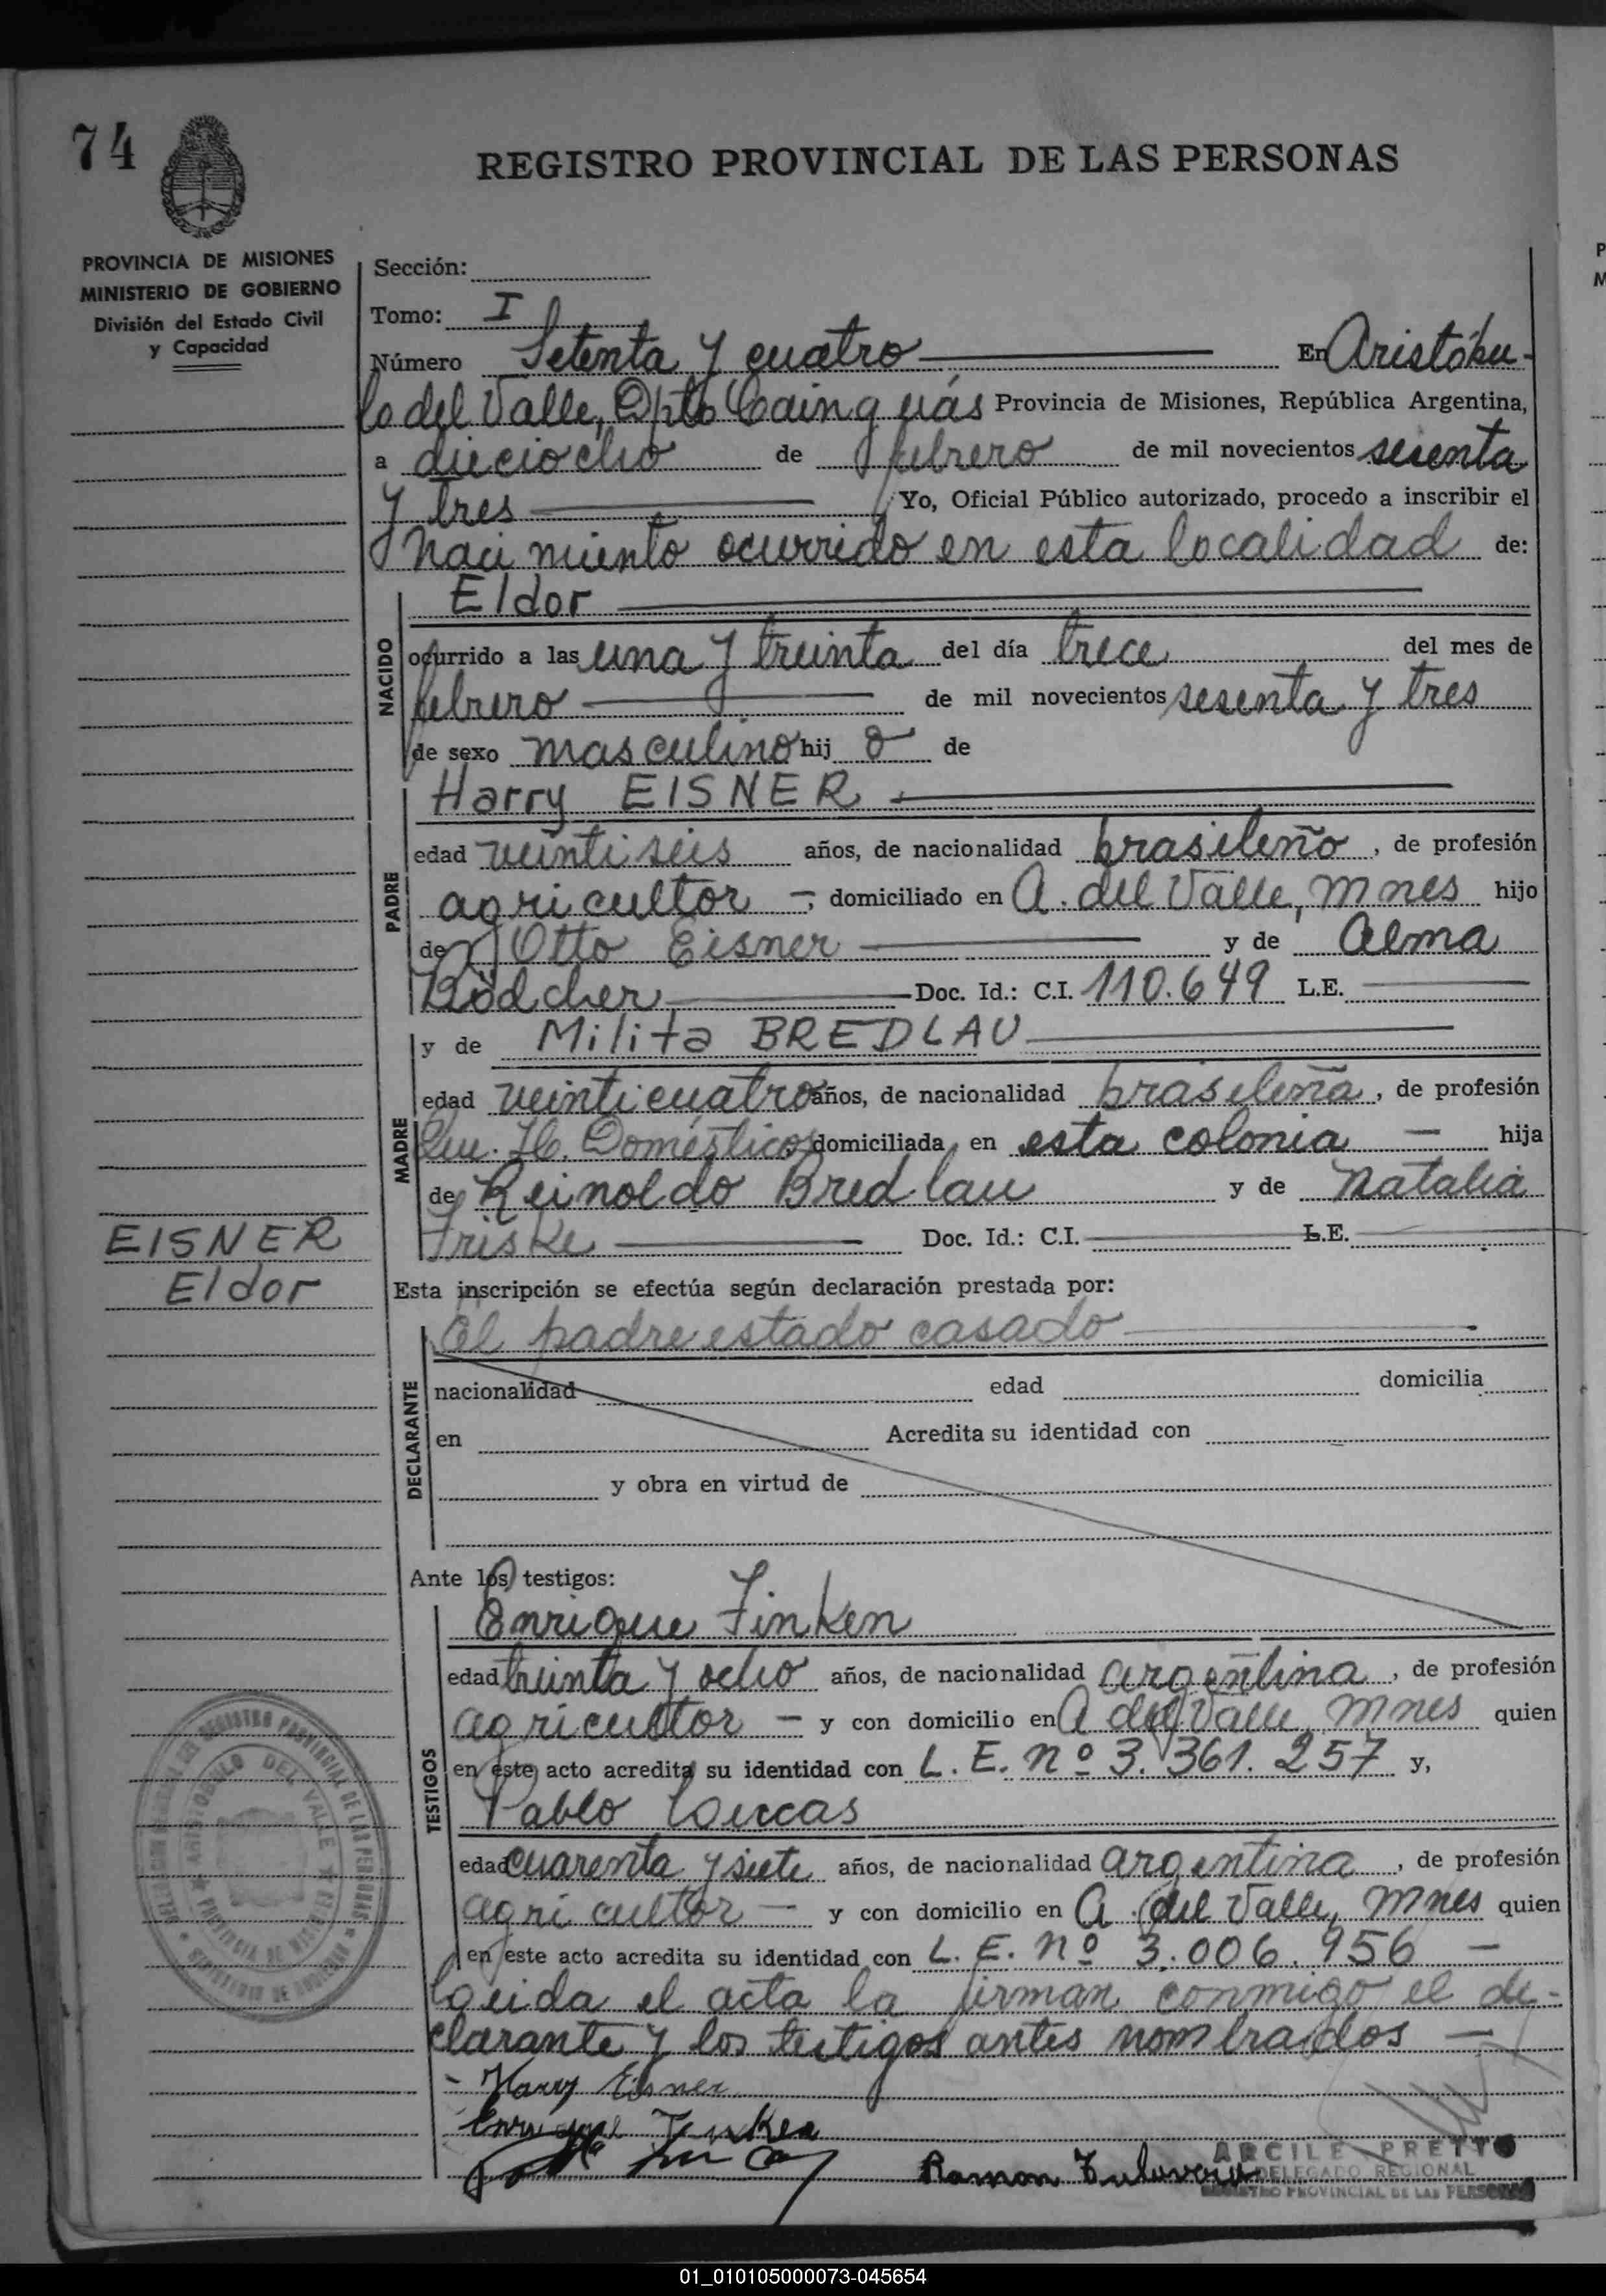 74
REGISTRO PROVINCIAL DE LAS PERSONAS
PROVINCIA DE MISIONES
MINISTERIO DE GOBIERNO
División del Estado Civil
y Capacidad
Sección:
Tomo: I
Número Setenta y cuatro En Aristóbu-
lo del Valle, Dpto Cainguás Provincia de Misiones, República Argentina,
a dieciocho de febrero de mil novecientos sesenta
y tres Yo, Oficial Público autorizado, procedo a inscribir el
nacimiento ocurrido en esta localidad de:
NACIDO
Eldor
ocurrido a las una y treinta del día trece del mes de
febrero de mil novecientos sesenta y tres
de sexo masculino hij o de
PADRE
Harry EISNER
edad veintiseis años, de nacionalidad brasileño, de profesión
agricultor - ; domiciliado en A. del Valle, Mnes hijo
de Otto Eisner y de Alma
Bödcher Doc. Id.: C.I. 110.649 L.E.
MADRE
y de Milita BREDLAU
edad veinticuatro años, de nacionalidad brasileña, de profesión
Qu. H. Domésticos domiciliada en esta colonia - hija
de Reinoldo Bredlau y de Natalia
Friske Doc. Id.: C.I. L.E.
EISNER
Eldor
Esta inscripción se efectúa según declaración prestada por:
DECLARANTE
el padre estado casado
nacionalidad edad domicilia
en Acredita su identidad con
y obra en virtud de
Ante los testigos:
TESTIGOS
Enrique Finken
edad treinta y ocho años, de nacionalidad argentina, de profesión
agricultor - y con domicilio en A del Valle, Mnes quien
en este acto acredita su identidad con L. E. nº 3.361.257 y,
Pablo Luccas
edad cuarenta y siete años, de nacionalidad argentina, de profesión
agricultor - y con domicilio en A. del Valle, Mnes quien
en este acto acredita su identidad con L. E. nº 3.006.956 -
Leída el acta la firman conmigo el de-
clarante y los testigos antes nombrados -
- Harry Eisner
Enrique Finken
Ramon
ARCILE PRETTO
DELEGADO REGIONAL
REGISTRO PROVINCIAL DE LAS PERSONAS
REGISTRO PROVINCIAL DE LAS PERSONAS
ARISTOBULO DEL VALLE
PROVINCIA DE MISIONES
01_010105000073-045654